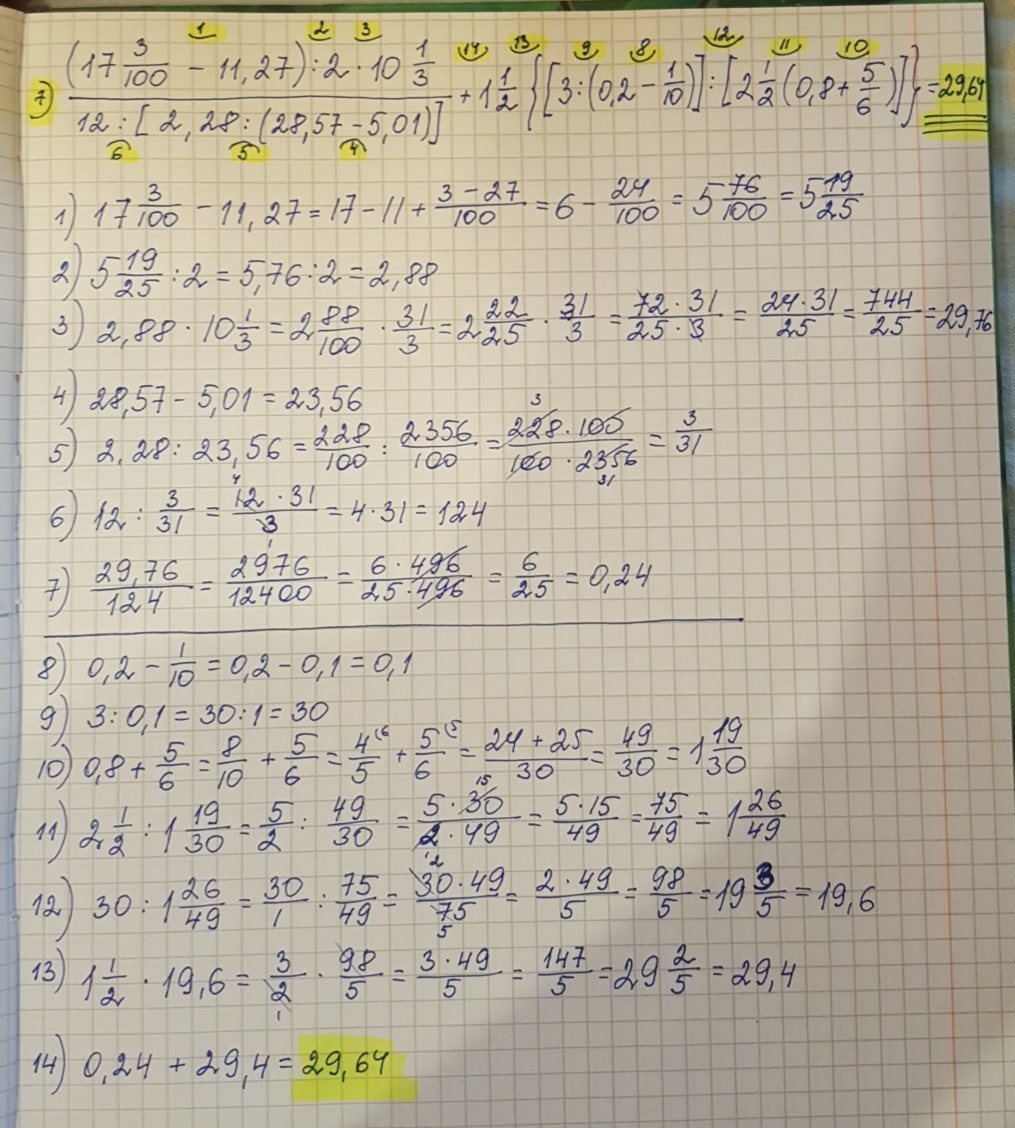 1 2 3 14 13 9 8 12 11 10
7) ((17 3/100 - 11,27) : 2 · 10 1/3) / (12 : [2,28 : (28,57 - 5,01)]) + 1 1/2 {[3 : (0,2 - 1/10)] : [2 1/2 (0,8 + 5/6)]} = 29,64
6 5 4
1) 17 3/100 - 11,27 = 17 - 11 + (3 - 27)/100 = 6 - 24/100 = 5 76/100 = 5 19/25
2) 5 19/25 : 2 = 5,76 : 2 = 2,88
3) 2,88 · 10 1/3 = 2 88/100 · 31/3 = 2 22/25 · 31/3 = (72 · 31)/(25 · 3) = (24 · 31)/25 = 744/25 = 29,76
4) 28,57 - 5,01 = 23,56
5) 2,28 : 23,56 = 228/100 : 2356/100 = (228 · 100)/(100 · 2356) = 3/31
6) 12 : 3/31 = (12 · 31)/3 = 4 · 31 = 124
7) 29,76/124 = 2976/12400 = (6 · 496)/(25 · 496) = 6/25 = 0,24
8) 0,2 - 1/10 = 0,2 - 0,1 = 0,1
9) 3 : 0,1 = 30 : 1 = 30
10) 0,8 + 5/6 = 8/10 + 5/6 = 4/5 (6 + 5/6 (5 = (24 + 25)/30 = 49/30 = 1 19/30
11) 2 1/2 : 1 19/30 = 5/2 : 49/30 = (5 · 30)/(2 · 49) = (5 · 15)/49 = 75/49 = 1 26/49
12) 30 : 1 26/49 = 30/1 : 75/49 = (30 · 49)/75 = (2 · 49)/5 = 98/5 = 19 3/5 = 19,6
13) 1 1/2 · 19,6 = 3/2 · 98/5 = (3 · 49)/5 = 147/5 = 29 2/5 = 29,4
14) 0,24 + 29,4 = 29,64